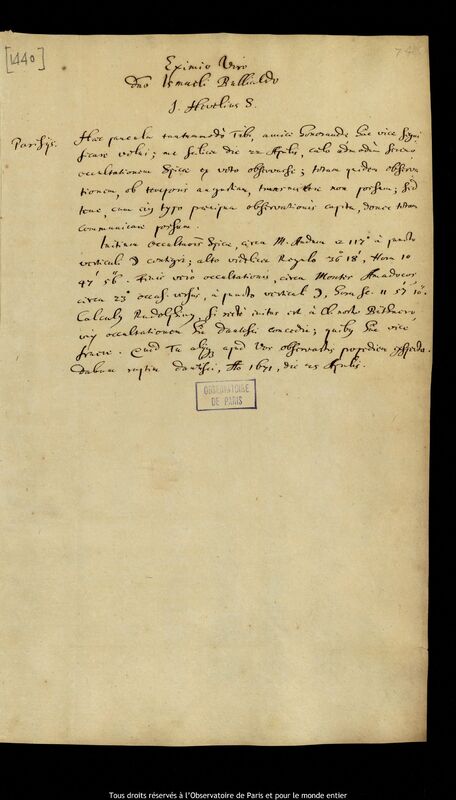 [1440]
Eximio Viro
dno Ismaeli Bullialdo
J. Hevelius S.
Parisijs.
Haec paucula tantummodò Tibi, amice honorande hac vice signi-
ficare volui; me scilicet die 22 Aprilis, caelo admodùm sereno
occultationem Spicae ex voto observasse; totam quidem observa-
tionem, ob temporis angustiam, transmittere non possum; sed
tene, cum ejus typo praecipua observationis capita, donec totam
communicare possum.
Initium occultationis Spicae, circa M. Audum a 117° à puncto
verticali ☽ contigit; alto videlicet Regulo 36° 18', Hora 10
47' 56". Finis verò occultationis, circa Montes Amadocos
circa 23° occas. versus, à puncto verticali ☽, hora sc. 11 57' 10".
Calculus Rudolphinus, si rectè initus est à Cl. nostro Büthnero,
vix occultationem hic Dantisci concedit; quibus hac vice
fruere. Quid Tu aliique apud Vos observastis propediem exspecto.
Dabam raptim Dantisci, Ao 1671, die 25 Aprilis.
OBSERVATOIRE
DE PARIS
Tous droits réservés à l'Observatoire de Paris et pour le monde entier